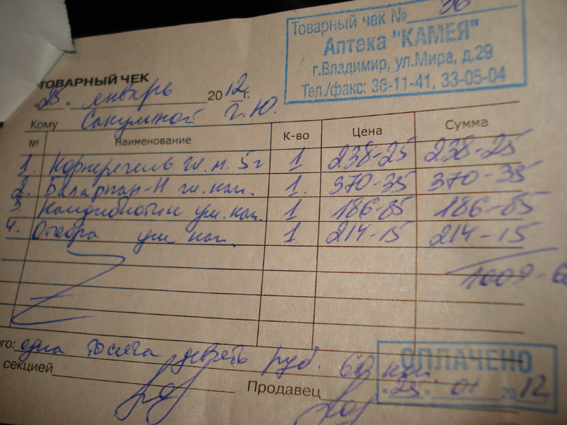 Товарный чек № 36
Аптека "КАМЕЯ"
г.Владимир, ул.Мира, д.29
Тел./факс: 36-11-41, 33-05-04
ТОВАРНЫЙ ЧЕК
25. январь 2012 г.
Кому Сакулиной Г.Ю.
№ Наименование К-во Цена Сумма
1. Корнерегель гл. м. 5г 1 238-25 238-25
2. Баларпан-Н гл. кап. 1. 370-35 370-35
3. Кандибиотик уш. кап. 1 186-85 186-85
4. Отофа уш. кап. 1 214-15 214-15
1009-6
одна тысяча девять руб. 60 коп.
секцией Продавец
ОПЛАЧЕНО
25. 01 2012